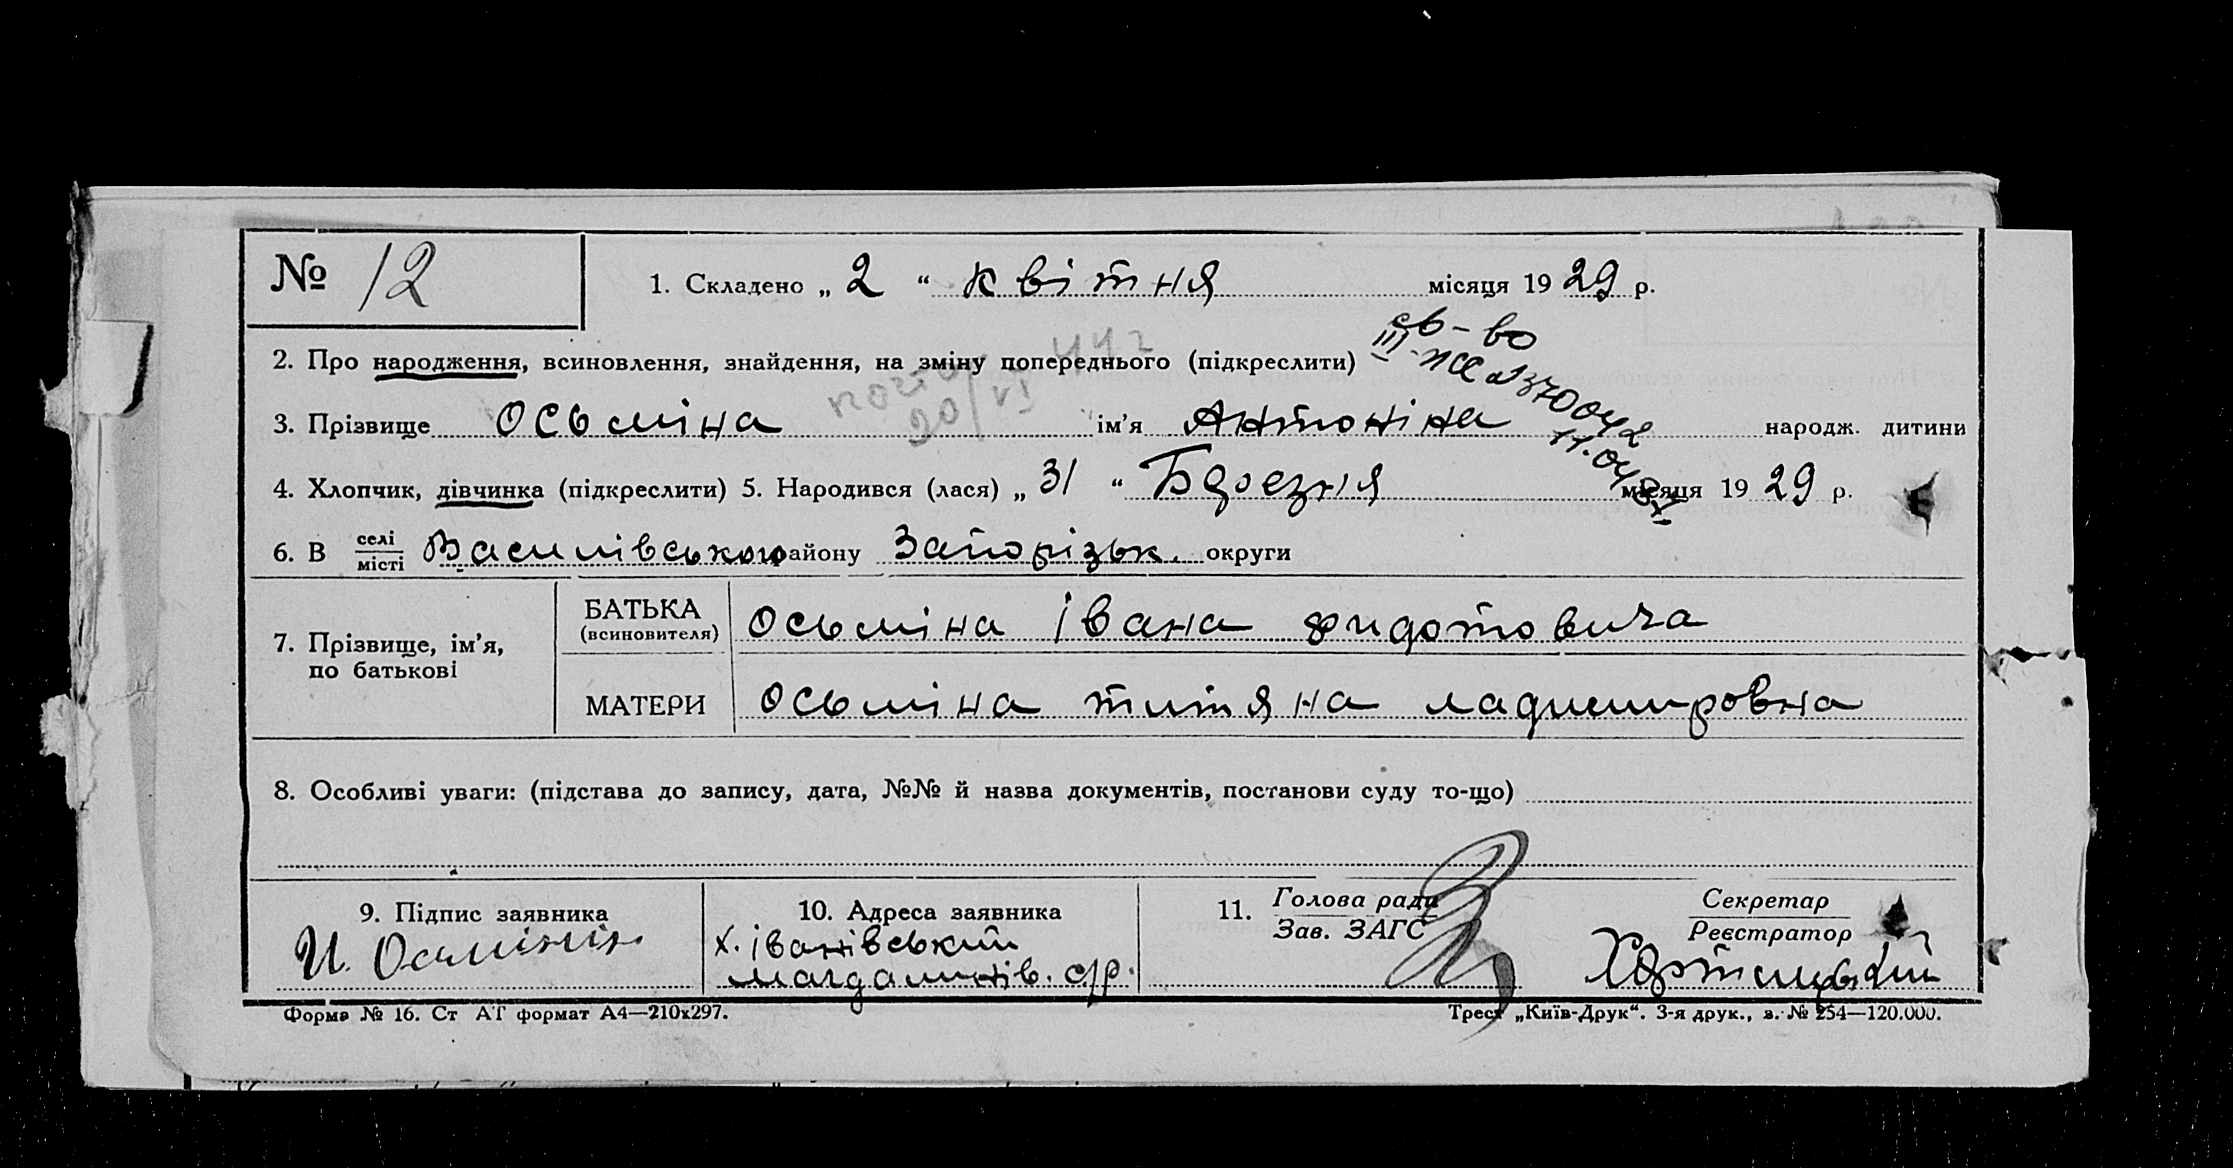 № 12
1. Складено „ 2 “ квітня місяця 1929 р.
2. Про народження, всиновлення, знайдення, на зміну попереднього (підкреслити)
св-во
III-ЖС 2370042
3. Прізвище Осьміна ім'я Антоніна народж. дитини
20/VI
4. Хлопчик, дівчинка (підкреслити) 5. Народився (лася) „ 31 “ Березня місяця 1929 р.
6. В селі місті Василівського району Запорізьк. округи
7. Прізвище, ім'я, по батькові
БАТЬКА (всиновителя) Осьміна Івана Фидотовича
МАТЕРИ Осьміна титяна ладимировна
8. Особливі уваги: (підстава до запису, дата, №№ й назва документів, постанови суду то-що)
9. Підпис заявника
И. Осьмінін
10. Адреса заявника
х. Іванівський
магдалинів. с/р.
11. Голова ради
Зав. ЗАГС
Секретар
Реєстратор
Форма № 16. Ст АТ формат А4—210x297.
Трест „Київ-Друк“. 3-я друк., з. № 254—120.000.